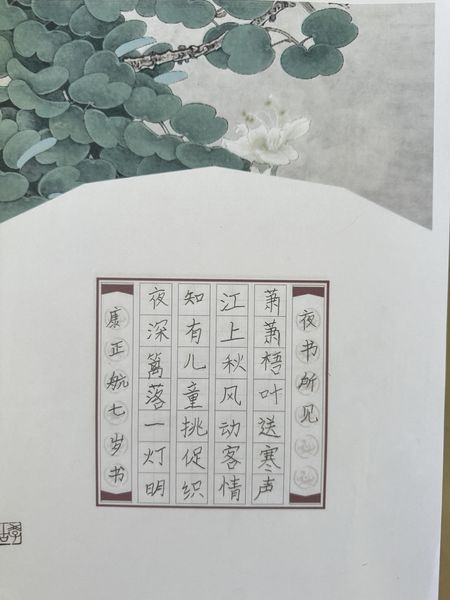 夜书所见
萧萧梧叶送寒声
江上秋风动客情
知有儿童挑促织
夜深篱落一灯明
康正航七岁书